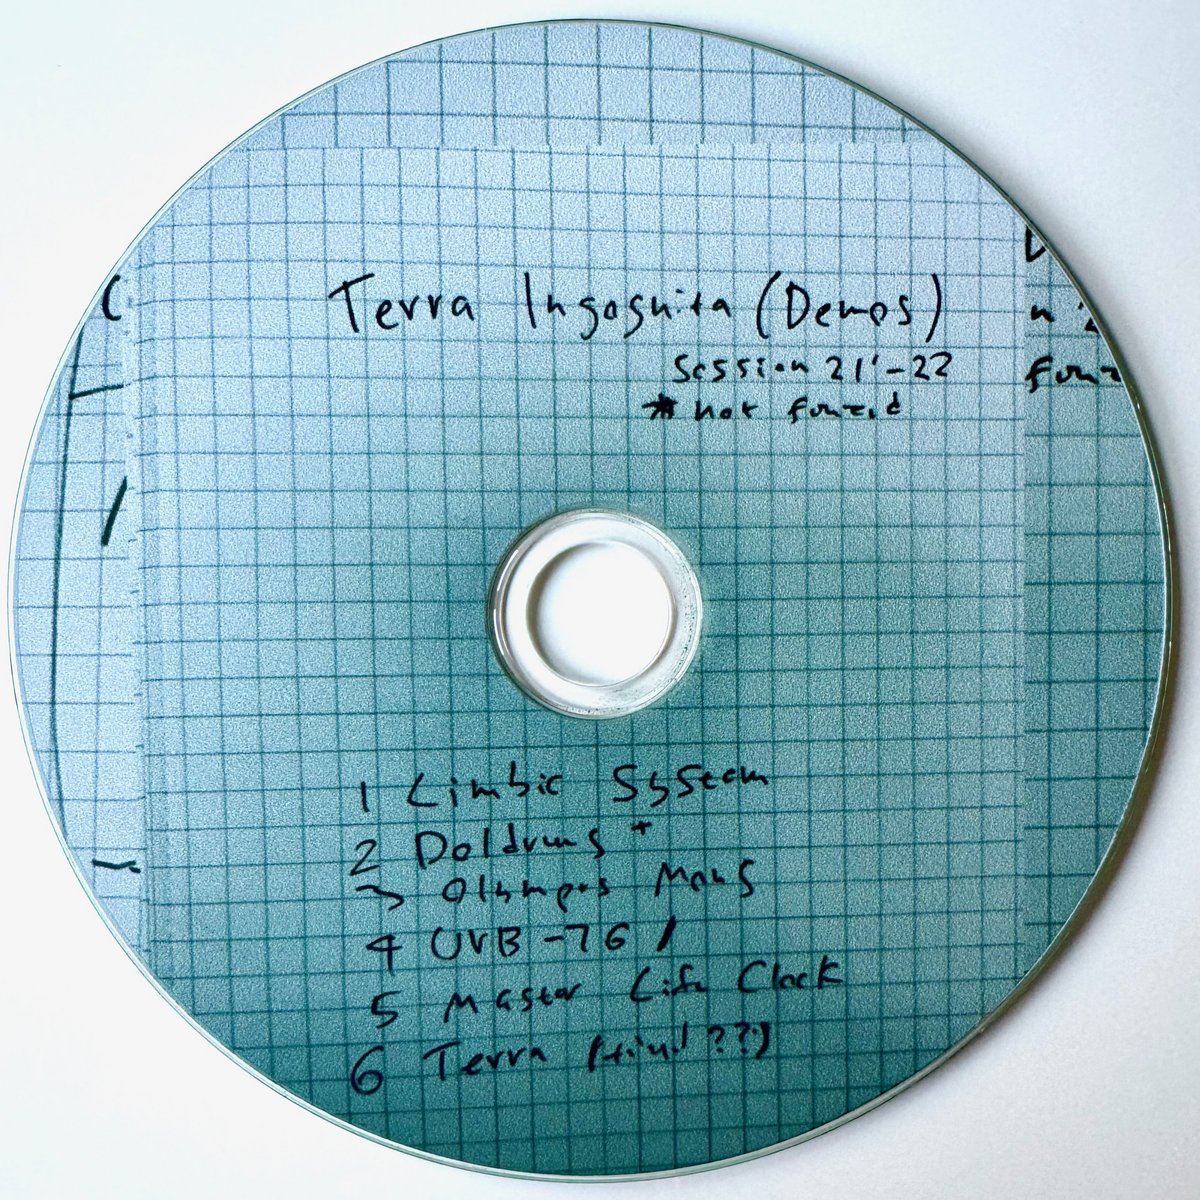 Terra Ingognita (Demos)
Session 21'-22
* not found
1 Limbic System
2 Doldrums +
3 Olympus Mons
4 UVB-76 /
5 Master Life Clock
6 Terra